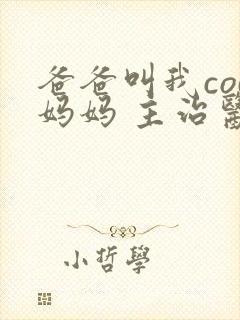 爸爸叫我co
妈妈 主治醫
小哲學